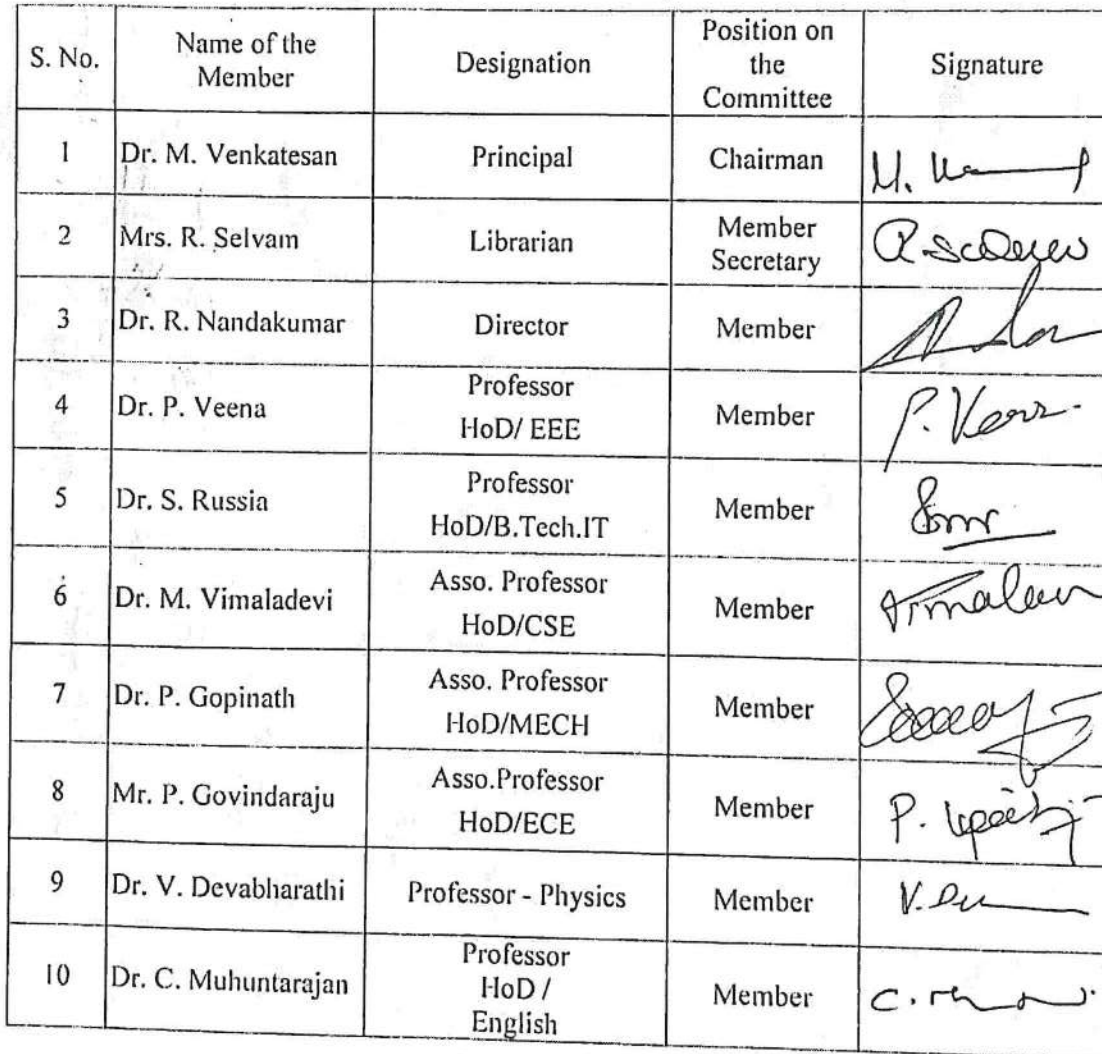 S. No. Name of the Member Designation Position on the Committee Signature
1 Dr. M. Venkatesan Principal Chairman M.
2 Mrs. R. Selvam Librarian Member Secretary R.
3 Dr. R. Nandakumar Director Member
4 Dr. P. Veena Professor HoD/ EEE Member P.
5 Dr. S. Russia Professor HoD/B.Tech.IT Member
6 Dr. M. Vimaladevi Asso. Professor HoD/CSE Member
7 Dr. P. Gopinath Asso. Professor HoD/MECH Member
8 Mr. P. Govindaraju Asso.Professor HoD/ECE Member P.
9 Dr. V. Devabharathi Professor - Physics Member V.
10 Dr. C. Muhuntarajan Professor HoD / English Member C.